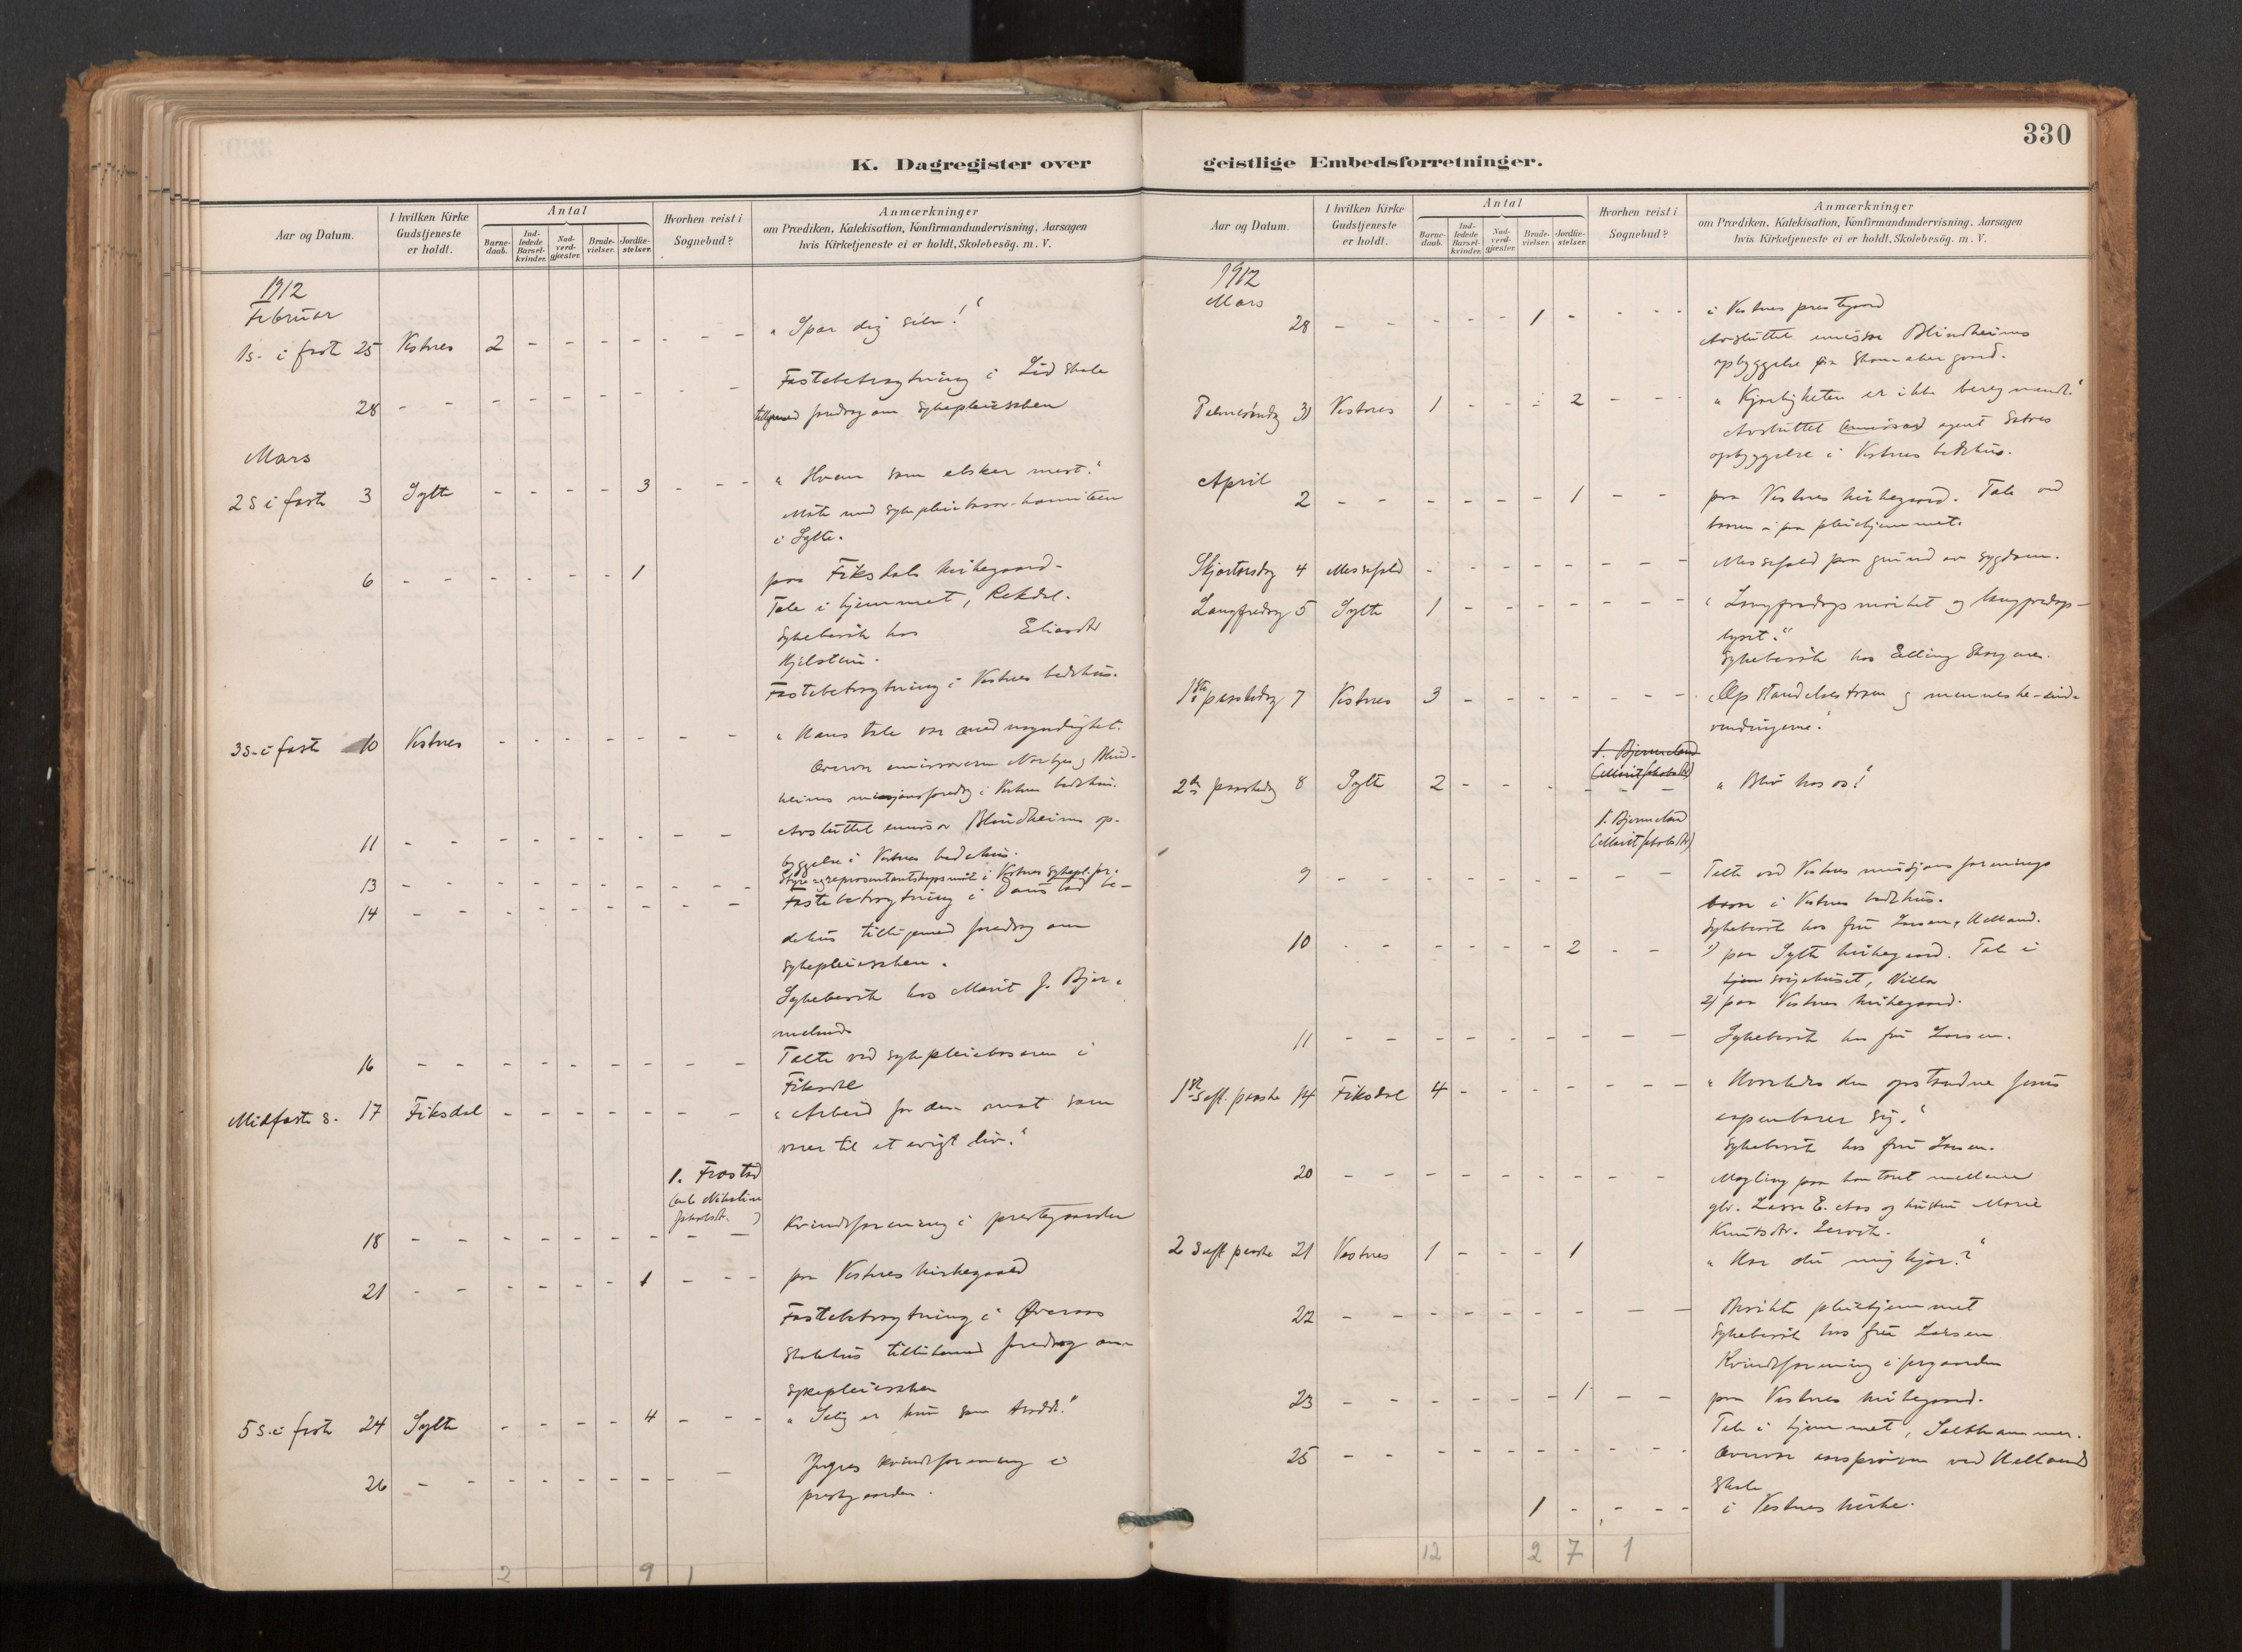 K. Dagregister over
Aar og Datum.
I hvilken Kirke Gudstjeneste er holdt.
Antal
Barne-daab.
Ind-ledede Barsel-kvinder.
Nad-verd-gjæster.
Brude-vielser.
Jordfæ-stelser.
Hvorhen reist i Sognebud?
Anmærkninger
om Prædiken, Katekisation, Konfirmandundervisning, Aarsagen
hvis Kirketjeneste ei er holdt, Skolebesög. m. V.
1912
Februar
1s. i fast 25 Vestnes 2 - - - - - - - „Spar dig selv!“
28 - - - - - - - - - Fastebetragtning i Lid skole
tilligemed foredrag om sykepleiesaken
Mars
2 S i faste 3 Sylte - - - - 3 - - - „Hvem som elsker mest.“
Møte med sykepleiekasse-komiteen
i Sylte.
6 - - - - - - - 1 paa Fiksdals kirkegaard -
Tale i hjemmet, Rekdal.
Sykebesøk hos
Gjelstein.
Fastebetragtning i Vestnes bedehus.
3 s. i faste 10 Vestnes - - - - - - - „Hans tale var med myndighet.
Overvar emissærerne og Blind-
heims misjonsforedrag i Vestnes bedehus.
11 - - - - - - - - - Avsluttet emissær Blindheims op-
byggelse i Vestnes bedehus.
13 - - - - - - - - - Styre og representantskapsmøte i Vestnes sykepl.for.
14 - - - - - - - - - Fastebetragtning i be-
dehus tilligemed foredrag om
sykepleiesaken.
Sykebesøk hos Marit J. Bjer-
meland
16 - - - - - - - - - Talte ved sykepleiebasaren i
Fiksdal
Midfaste s. 17 Fiksdal - - - - - - - „Arbeid for den mat som
varer til et evigt liv.“
1. Frostad
(enke Nikoline
Jakobsdtr. )
18 - - - - - - - - - Kvindeforening i prestegaarden
21 - - - - - - 1 - - - paa Vestnes kirkegaard
Fastebetragtning i Øveraas
skolehus tillikemed foredrag om
sykepleiesaken
5 s. i faste 24 Sylte - - - - 4 - - - „Salig er hun som trodde.“
26 - - - - - - - - - Yngres kvindeforening i
prestegaarden.
2 9 1
330
geistlige Embedsforretninger.
Aar og Datum.
I hvilken Kirke Gudstjeneste er holdt.
Antal
Barne-daab.
Ind-ledede Barsel-kvinder.
Nad-verd-gjæster.
Brude-vielser.
Jordfæ-stelser.
Hvorhen reist i Sognebud?
Anmærkninger
om Prædiken, Katekisation, Konfirmandundervisning, Aarsagen
hvis Kirketjeneste ei er holdt, Skolebesög. m. V.
1912
Mars
28 - - - - - 1 - - - - i Vestnes prestegaard
Avsluttet emissær Blindheims
opbyggelse paa gaard.
Palmesøndag 31 Vestnes 1 - - - 2 - - - „Kjærligheten er ikke beregnende.“
Avsluttet agent
opbyggelse i Vestnes bedehus.
April
2 - - - - - - 1 - - paa Vestnes kirkegaard. Tale ved
baaren i paa pleiehjemmet.
Skjærtorsdag 4 Messefald - - - - - - - - Messefald paa grund av sygdom.
Langfredag 5 Sylte 1 - - - - - - - „Langfredags mørket og langfredags-
lyset.“
Sykebesøk hos Elling
1ste paaskedag 7 Vestnes 3 - - - - - - - „Opstandelsestroen og menneske-ind-
vendingerne.“
1. Bjermeland
(Marit Jakobsdtr)
2den paaskedag 8 Sylte 2 - - - - - - „Bliv hos os!“
1. Bjermeland
(Marit Jakobsdtr)
9 - - - - - - - - - Talte ved Vestnes misjonsforenings
basar i Vestnes bedehus.
Sykebesøk hos fru Larsen, Helland.
10 - - - - - - 2 - - 1) paa Sylte kirkegaard. Tale i
hjem sørgehuset, Villa
2) paa Vestnes kirkegaard.
11 - - - - - - - - - Sykebesøk hos fru Larsen.
1ste S eft. paaske 14 Fiksdal 4 - - - - - - - „Hvorledes den opstandne Jesus
aapenbarer sig.“
Sykebesøk hos fru Larsen.
20 - - - - - - - - - Mægling paa kontoret mellem
gbr. Lasse E. Aas og hustru Marie
Knutsdtr.
2 S eft paaske 21 Vestnes 1 - - - 1 „Har du mig kjær?“
22 - - - - - - - - - Besøkte pleiehjemmet
Sykebesøk hos fru Larsen
Kvindeforening i prgaarden
23 - - - - - - 1 - - paa Vestnes kirkegaard.
Tale i hjemmet, Salthammer.
25 - - - - - - - - - Overvar aarsprøven ved Helland
skole
1 - - - - i Vestnes kirke.
12 2 7 1